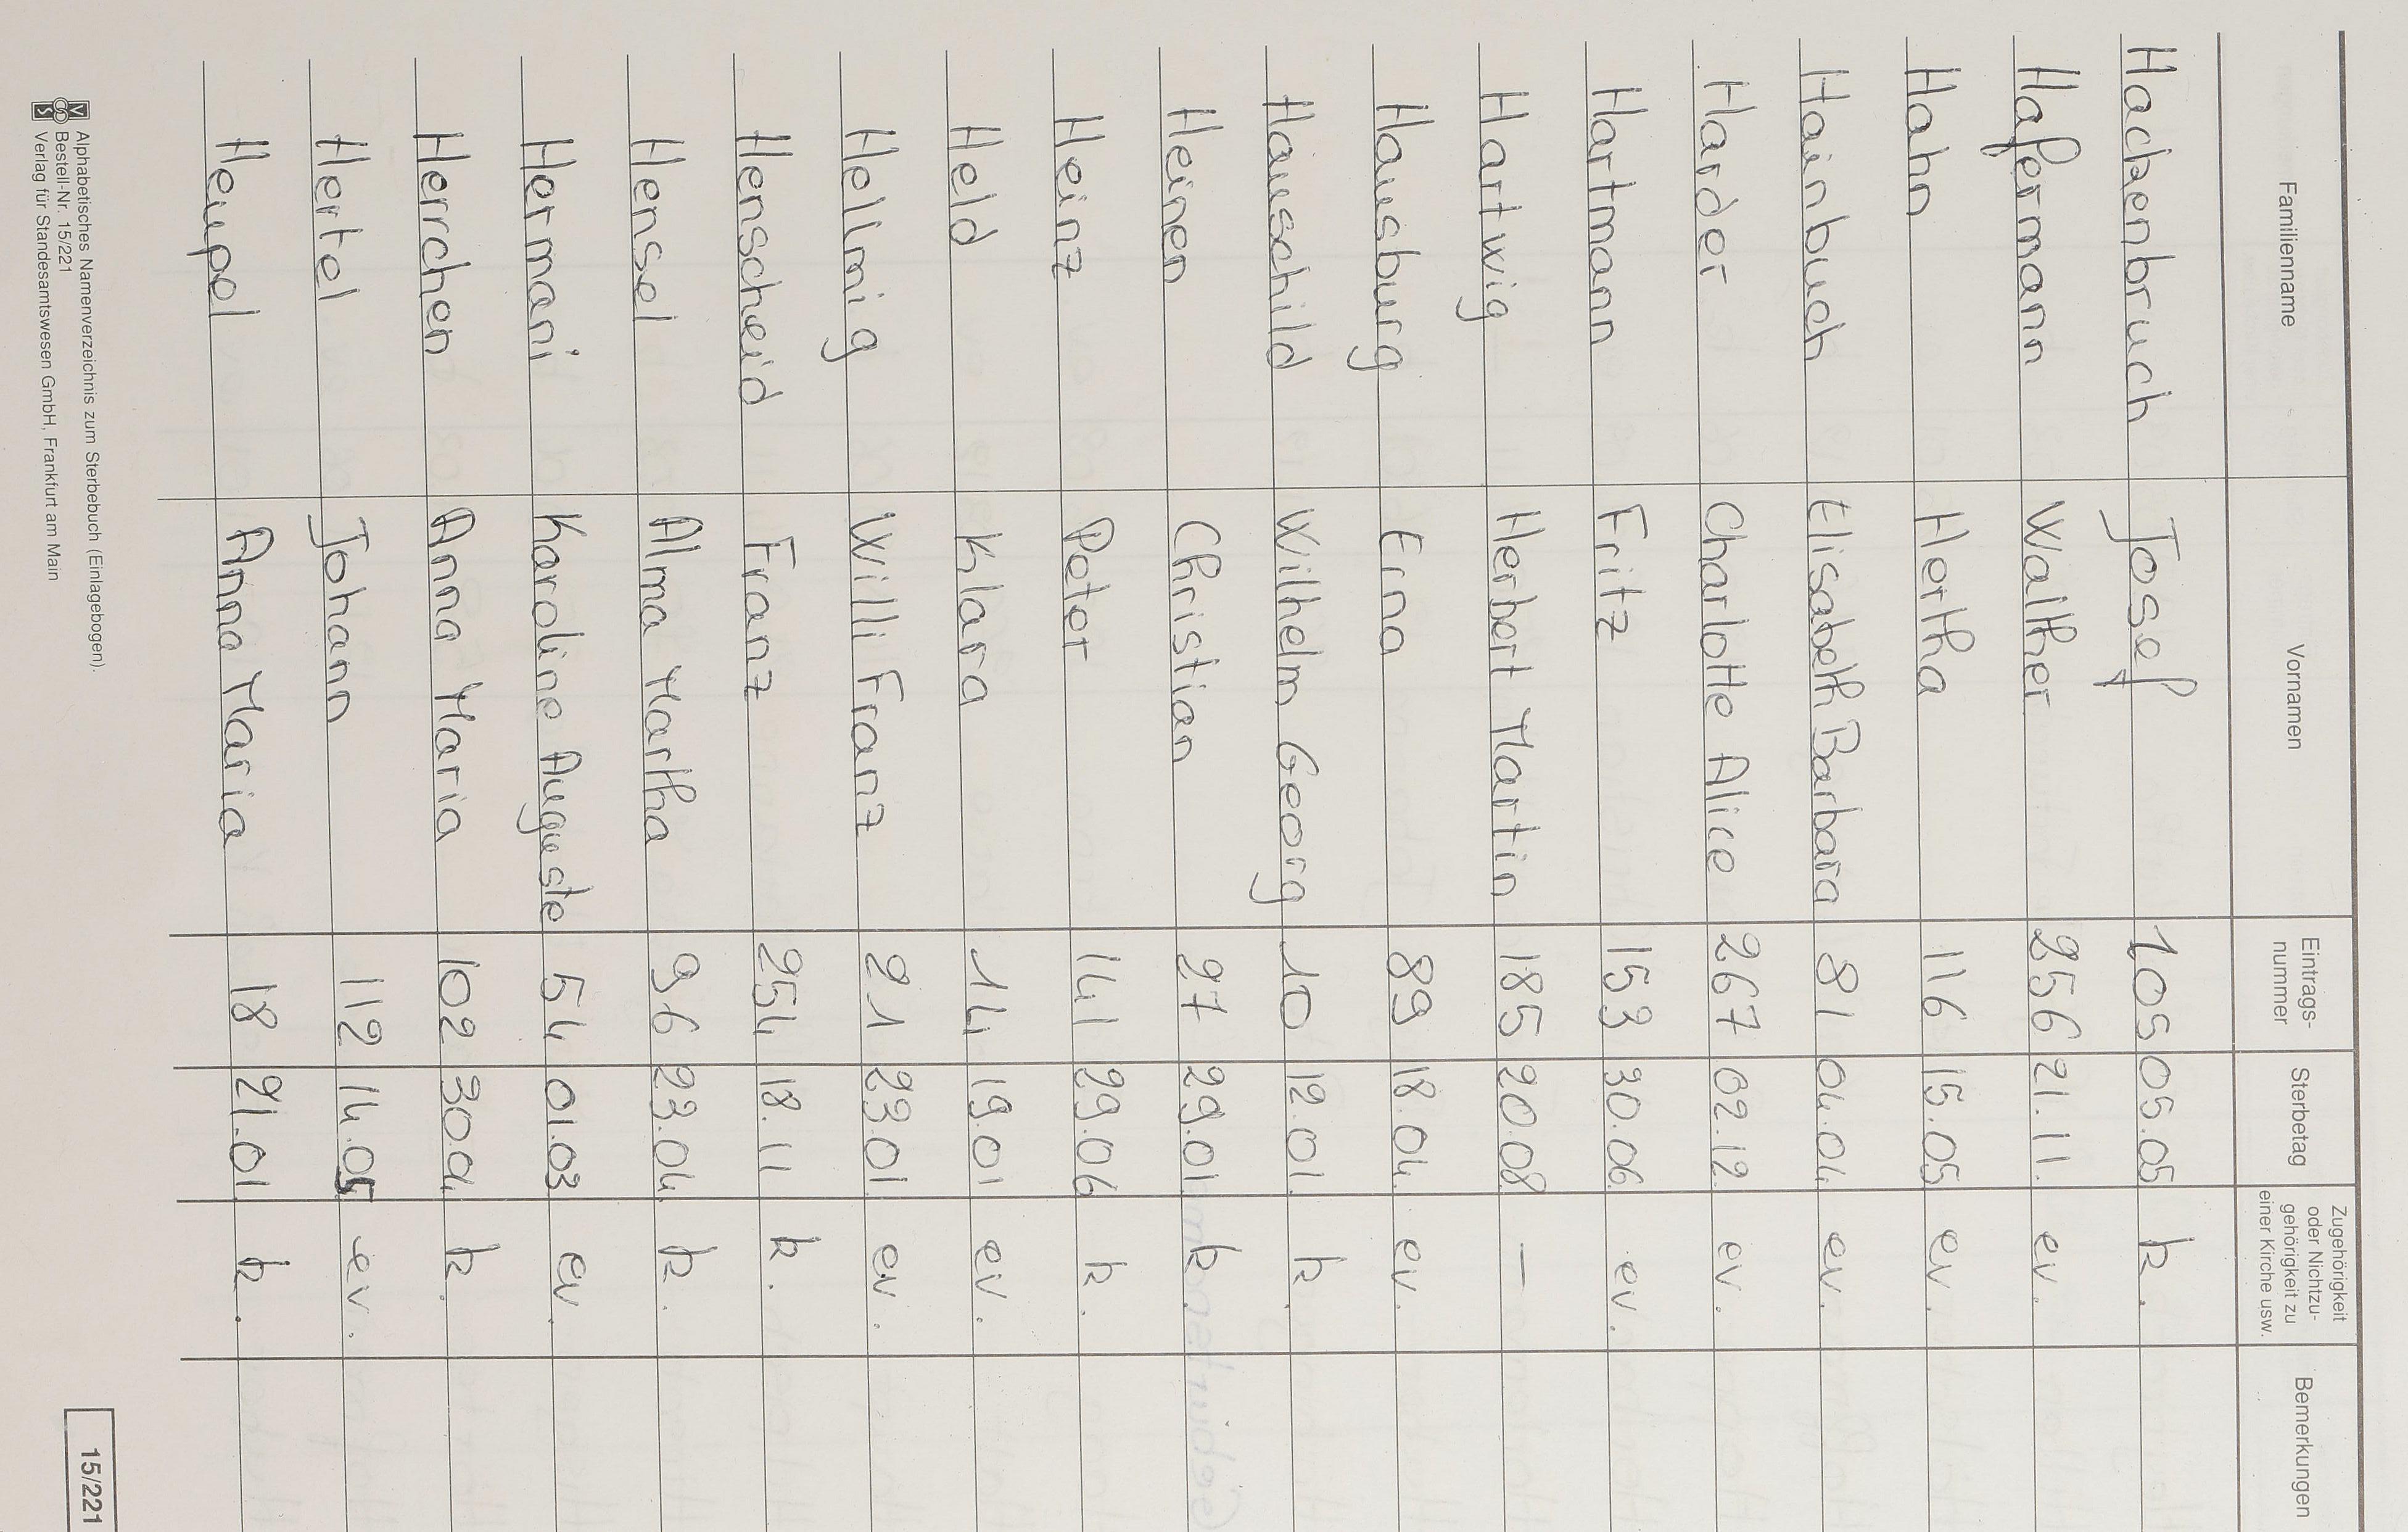 Familienname Vornamen Eintrags-nummer Sterbetag Zugehörigkeit oder Nichtzu-gehörigkeit zu einer Kirche usw. Bemerkungen
Hackenbruch Josef 105 05.05 k.
Hafermann Walther 256 21.11. ev.
Hahn Hertha 116 15.05 ev.
Hainbuch Elisabeth Barbara 81 04.04 ev.
Harder Charlotte Alice 267 02.12 ev.
Hartmann Fritz 153 30.06 ev.
Hartwig Herbert Martin 185 20.08 —
Hausburg Erna 89 18.04. ev.
Hauschild Wilhelm Georg 10 12.01. k.
Heinen Christian 27 29.01 k.
Heinz Peter 141 29.06 k.
Held Klara 14 19.01 ev.
Hellmig Willi Franz 21 23.01 ev.
Henscheid Franz 254 18.11 k.
Hensel Alma Martha 96 23.04 k.
Hermani Karoline Auguste 54 01.03 ev.
Herrchen Anna Maria 102 30.04 k.
Hertel Johann 112 14.05 ev.
Heupel Anna Maria 18 21.01 k.
Alphabetisches Namenverzeichnis zum Sterbebuch (Einlagebogen).
Bestell-Nr. 15/221
Verlag für Standesamtswesen GmbH, Frankfurt am Main
15/221